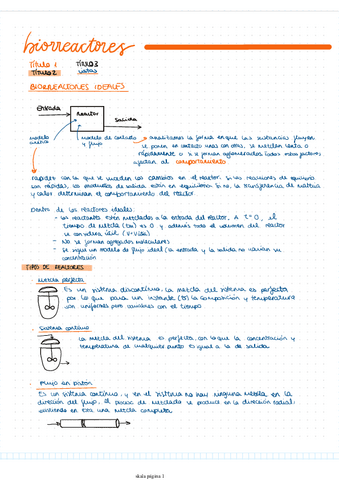 biorreactores
Título 1 Título 3
Título 2 notas
BIORREACCIONES IDEALES
Entrada Reactor Salida
modelo modelo de contacto y flujo analizamos la forma en que las sustancias fluyen,
se ponen en contacto unas con otras, se mezclan lenta o
rápidamente o si se forman aglomerados. Todos estos factores
afectan al comportamiento
rapidez con la que se suceden los cambios en el reactor. Si las reacciones de equilibrio
son rápidas, los productos de salida están en equilibrio. Si no, la transferencia de materia
y calor determinan el comportamiento del reactor
Dentro de los reactores ideales:
- los reactantes están mezclados a la entrada del reactor. A z=0, el
tiempo de mezcla es 0 y además todo el volumen del reactor
se considera útil
- No se forman agregados moleculares
- Se sigue un modelo de flujo ideal la entrada y la salida no varían su
concentración
TIPOS DE REACTORES
- Mezcla perfecta
Es un sistema discontinuo. La mezcla del sistema es perfecta
por lo que para un instante (t) la composición y temperatura
son uniformes pero variables con el tiempo
- Sistema continuo
La mezcla del sistema es perfecta, con lo que la concentración y
temperatura de cualquier punto es igual a la de salida.
- Flujo en pistón
Es un sistema continuo, y en el sistema no hay ninguna mezcla en la
dirección del flujo, el proceso de mezclado se produce en la dirección radial,
existiendo en esa una mezcla completa.
página 1